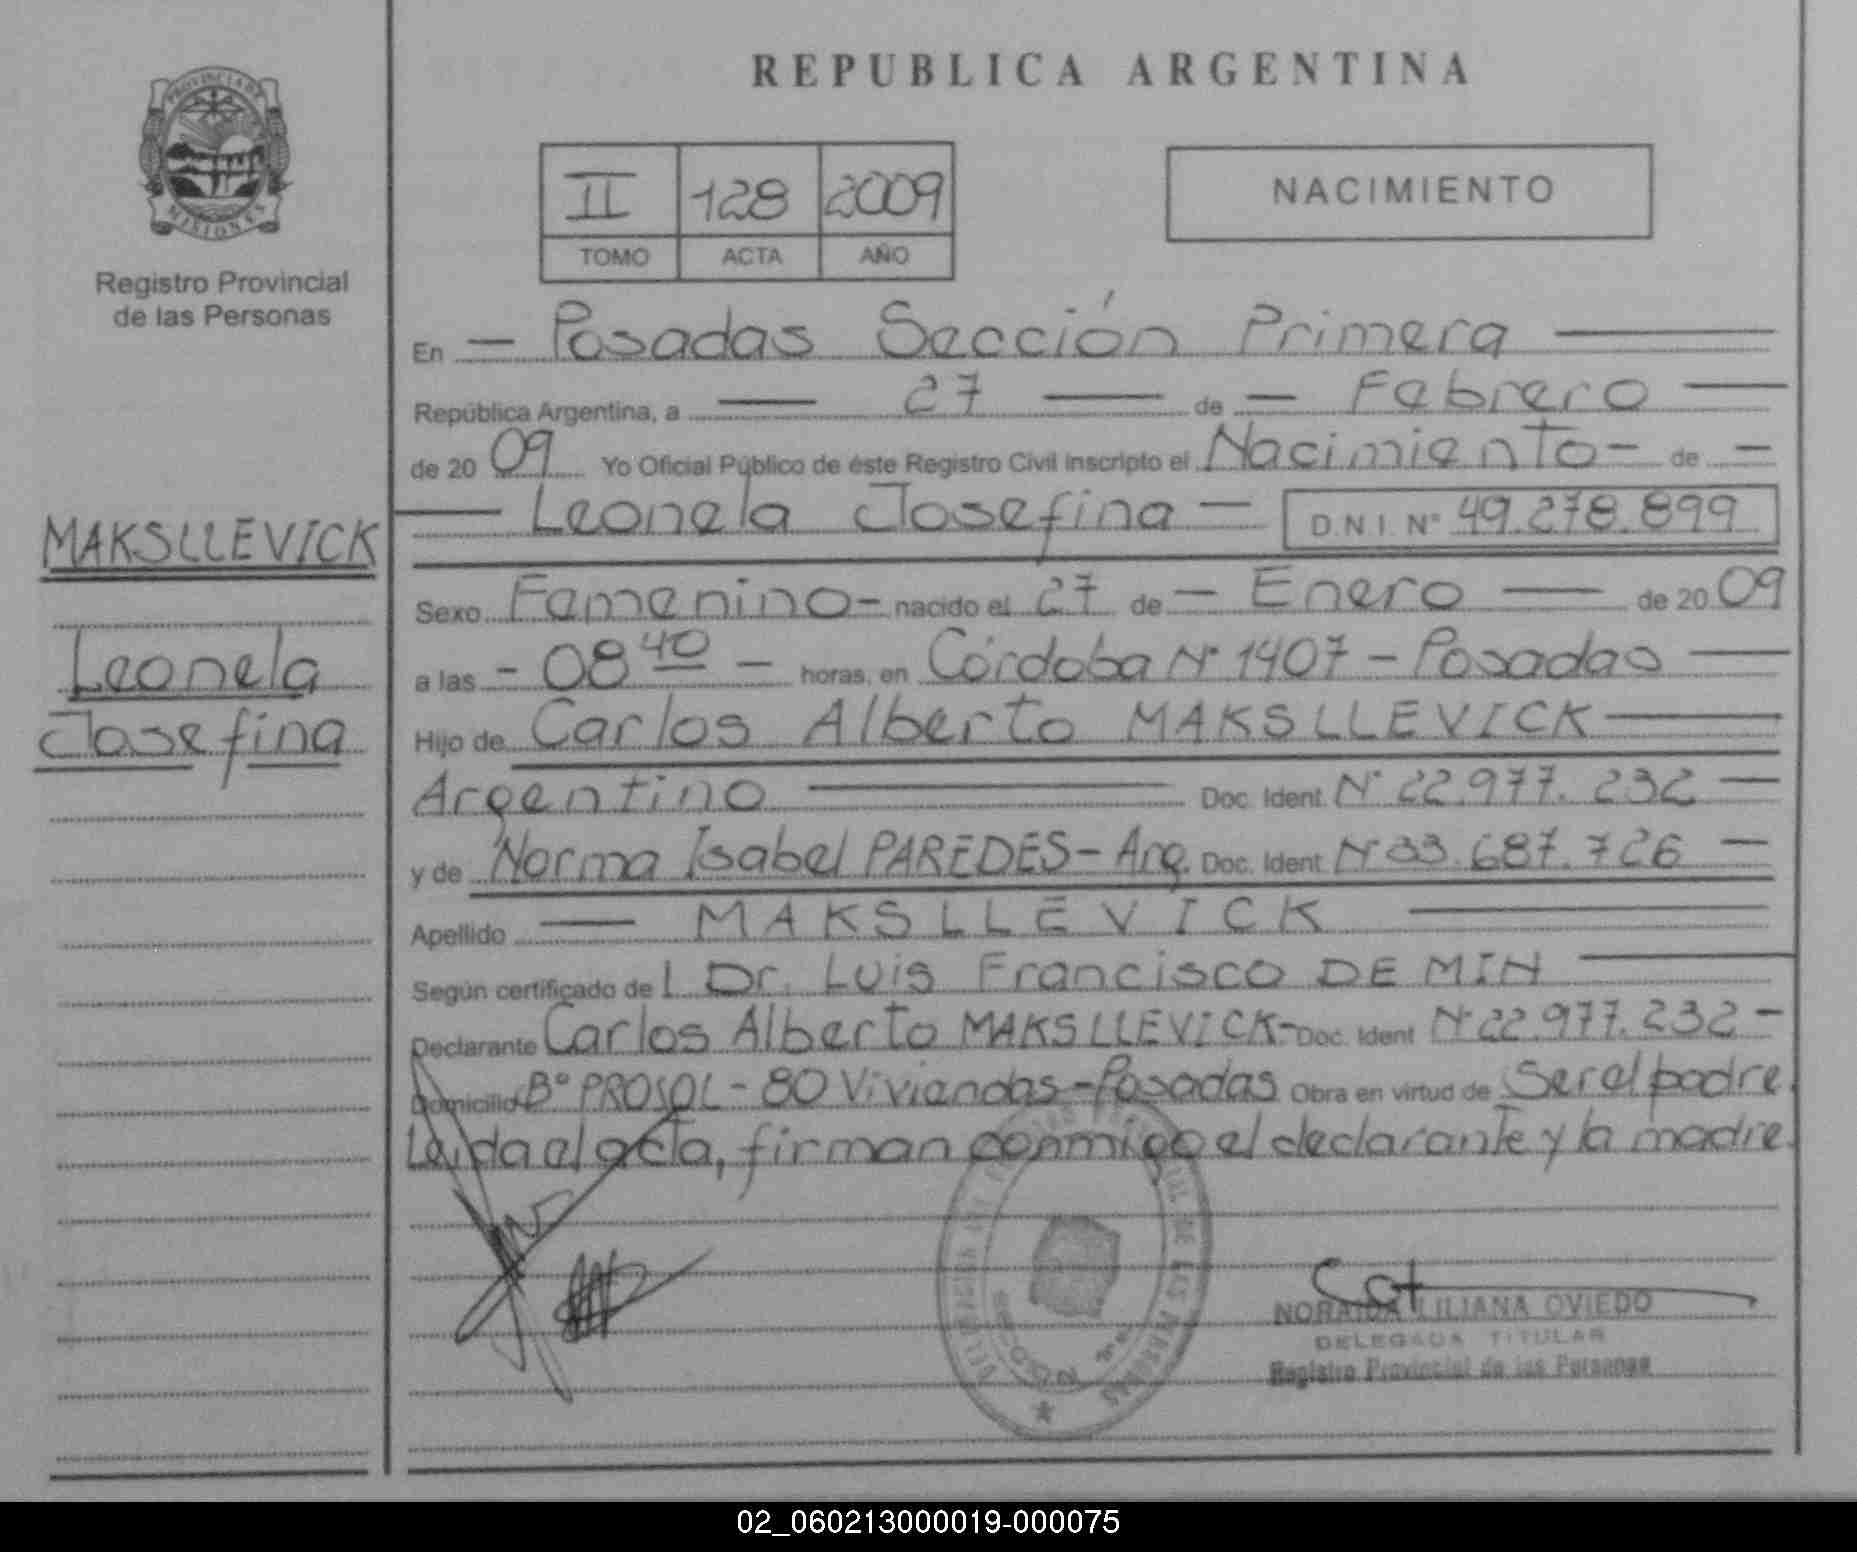 REPUBLICA ARGENTINA
PROVINCIA DE
MISIONES
Registro Provincial
de las Personas
MAKSLLEVICK
Leonela
Josefina
II 128 2009
TOMO ACTA AÑO
NACIMIENTO
En — Posadas Sección Primera —
República Argentina, a — 27 — de — Febrero —
de 20 09 Yo Oficial Público de éste Registro Civil inscripto el Nacimiento - de —
— Leonela Josefina — D.N.I. Nº 49.278.899
Sexo Femenino - nacido el 27 de — Enero — de 2009
a las - 08 40 — horas, en Córdoba Nº 1407 - Posadas —
Hijo de Carlos Alberto MAKSLLEVICK —
Argentino — Doc. Ident. Nº 22.977.232 —
y de Norma Isabel PAREDES - Arg. Doc. Ident. Nº 33.687.726 —
Apellido — MAKSLLEVICK —
Según certificado de l Dr. Luis Francisco DE MIN —
Declarante Carlos Alberto MAKSLLEVICK - Doc. Ident Nº 22.977.232 -
Domicilio Bº PROSOL - 80 Viviendas - Posadas Obra en virtud de Ser el padre.
Leída el acta, firman conmigo el declarante y la madre.
NORAIDA LILIANA OVIEDO
DELEGADA TITULAR
Registro Provincial de las Personas
02_060213000019-000075